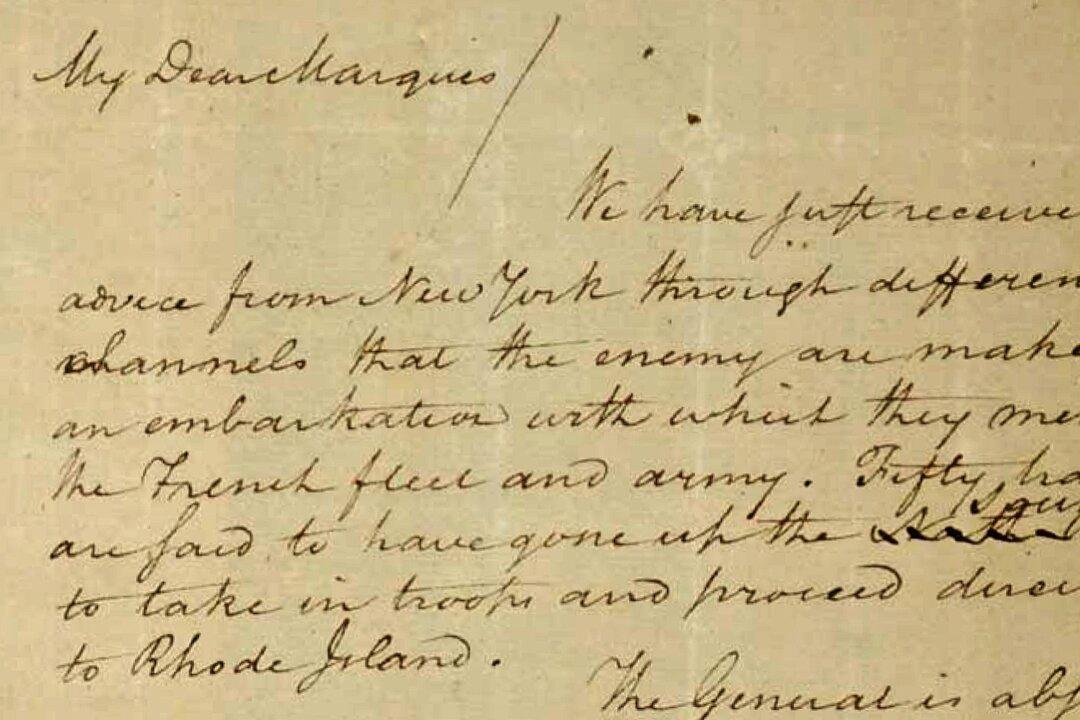 My Dear Marquis
We have just receive
advice from New York through differen
channels that the enemy are mak
an embarkation with which they me
the French fleet and army. Fifty
are said to have gone up the
to take in troops and proceed direc
to Rhode Island.
The General is abs